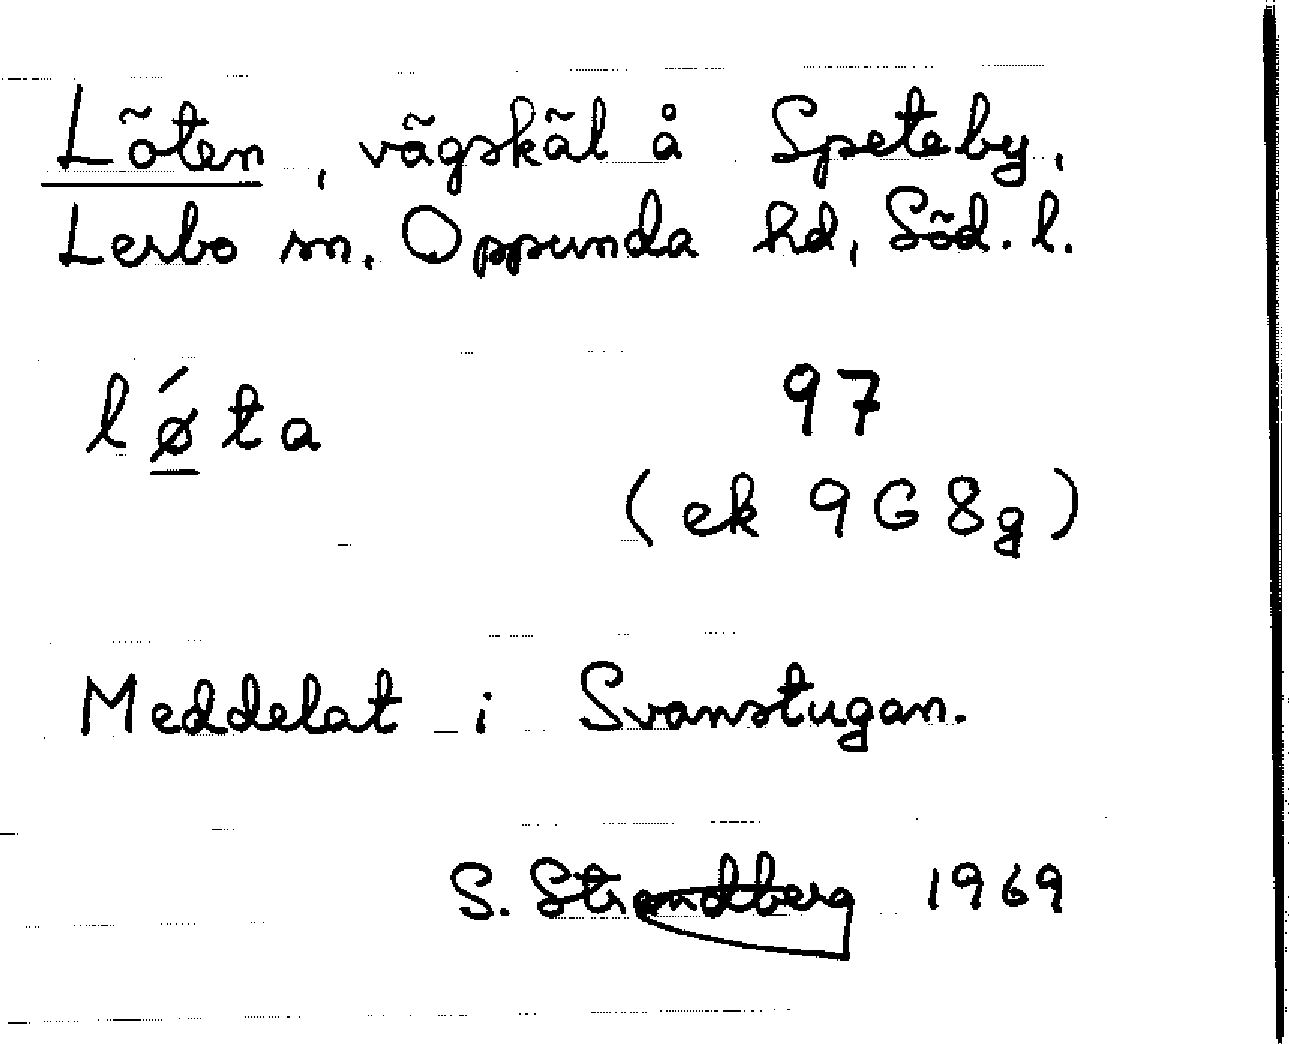 Löten, vägskäl å Speteby,
Lerbo sn, Oppunda hd, Söd. l.
lǿta 97
(ek 9G8g)
Meddelat i Svanstugan.
S. Strandberg 1969